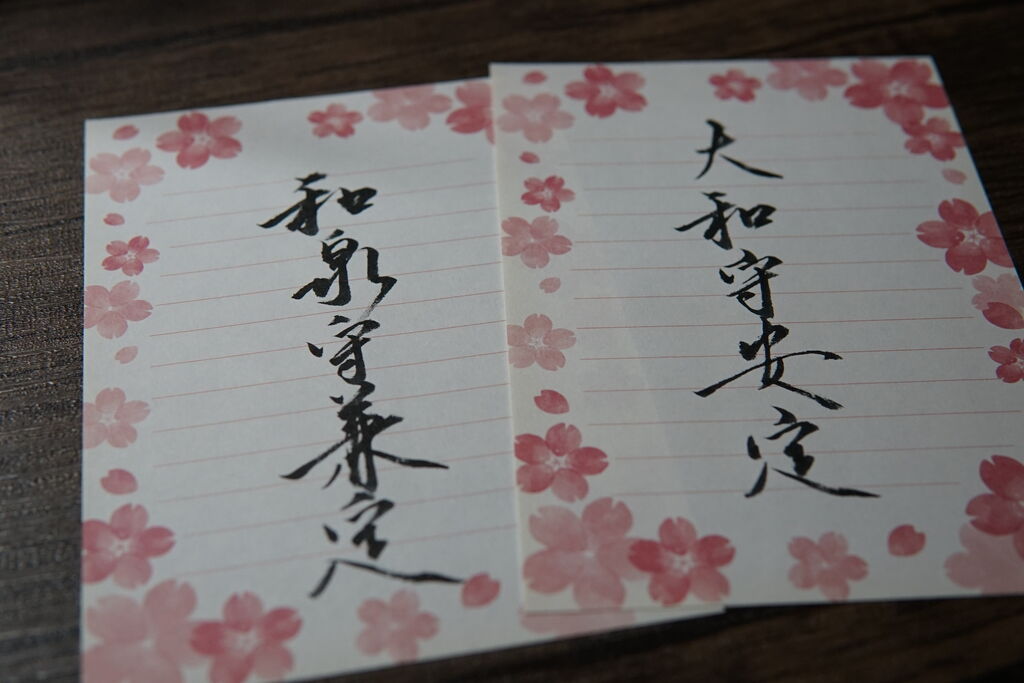 和泉守兼定
大和守安定